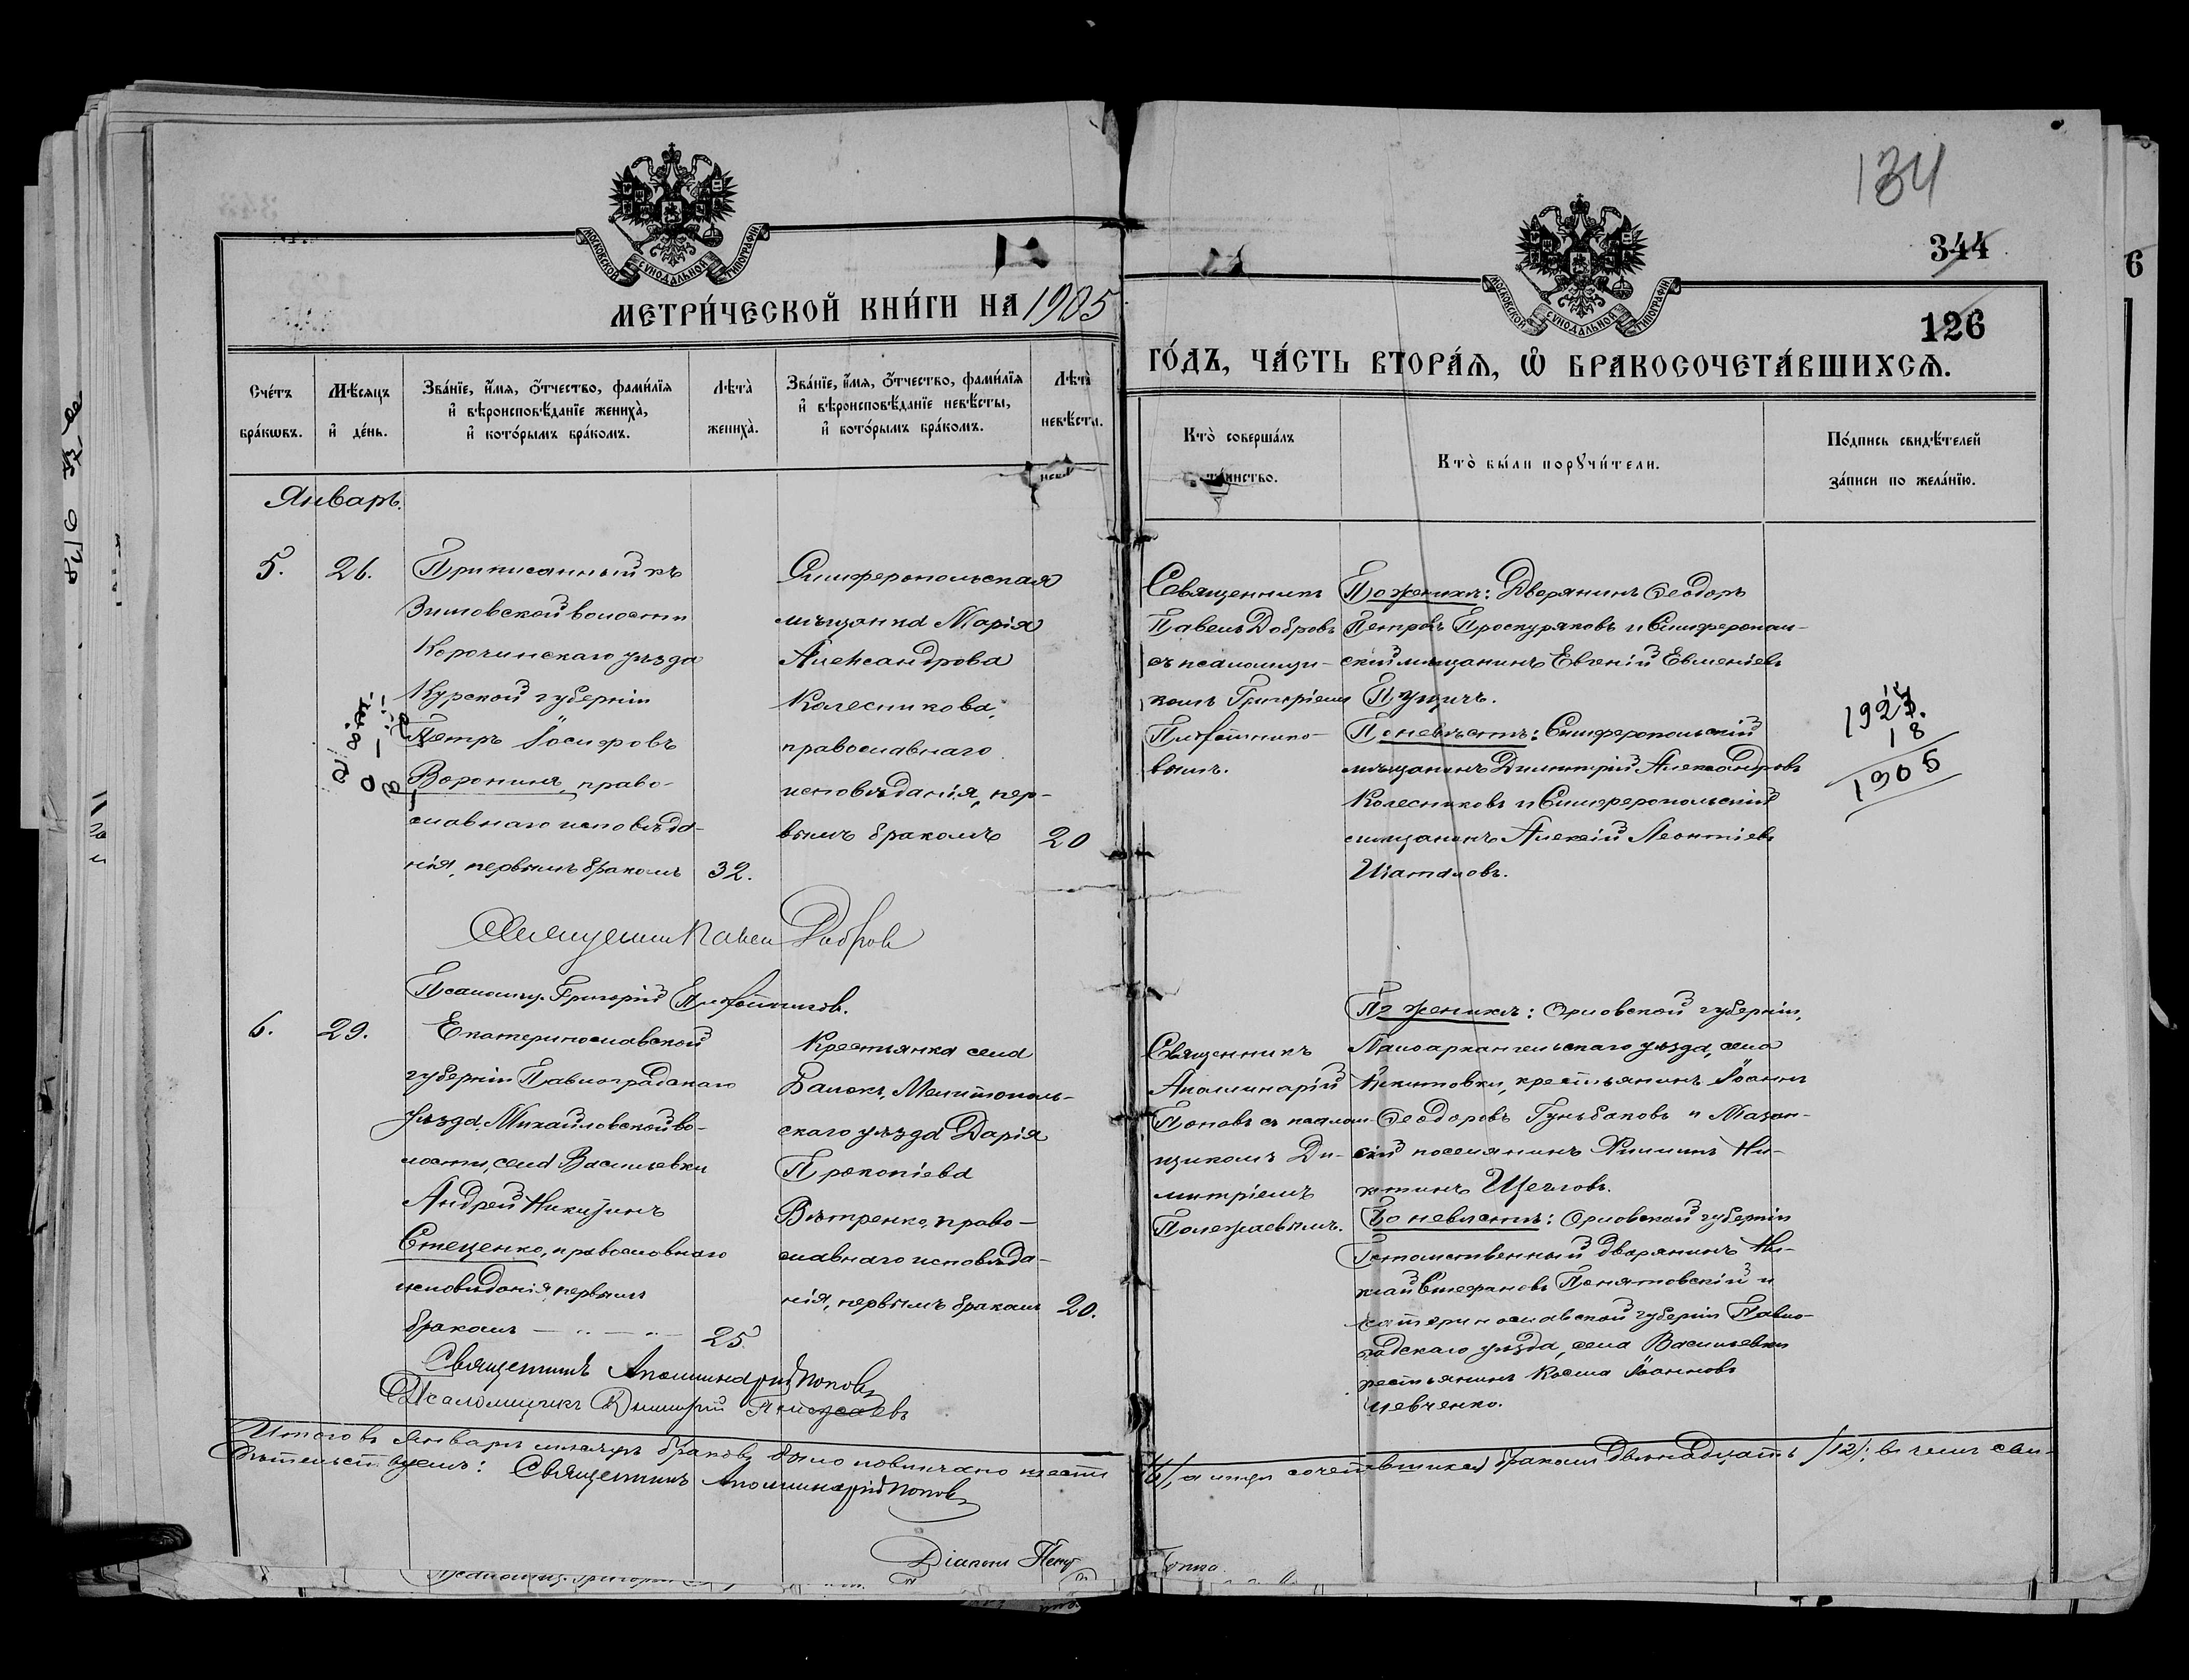 134
344
126
МОСКОВСКОЙ СѴНОДАЛЬНОЙ ТИПОГРАФІИ
МОСКОВСКОЙ СѴНОДАЛЬНОЙ ТИПОГРАФІИ
МЕТРИ́ЧЕСКОЙ КНИ́ГИ НА 1905
ГО́ДЪ, ЧА́СТЬ ВТОРА́Ѧ, Ѡ҆ БРАКОСОЧЕТА́ВШИХСѦ.
Сче́тъ бра́кѡвъ.
Мѣ́сяцъ и҆ де́нь.
Зва́нїе, и҆́мя, ѻ҆́тчество, фами́лїя
и҆ вѣроисповѣ́данїе жениха̀,
и҆ кото́рымъ бра́комъ.
Лѣта̀ жениха̀.
Зва́нїе, и҆́мя, ѻ҆́тчество, фами́лїя
и҆ вѣроисповѣ́данїе невѣ́сты,
и҆ кото́рымъ бра́комъ.
Лѣта̀ невѣ́сты.
Кто̀ соверша́лъ
та́инство.
Кто̀ бы́ли порꙋчи́тели.
По́дпись свидѣ́телей
за́писи по жела́нїю.
Январь.
5.
26.
Приписанный къ
Зимовской волости
Корочинскаго уѣзда
Курской губерніи
Петръ Іосифовъ
Воронинъ, право-
славнаго исповѣда-
нія, первымъ бракомъ
32.
Симферопольская
мѣщанка Марія
Александрова
Колесникова,
православнаго
исповѣданія, пер-
вымъ бракомъ
20
Священникъ
Павелъ Добровъ
съ псаломщи-
комъ Григоріемъ
вымъ.
По женихѣ: Дворянинъ Ѳеодоръ
Петровъ Проскуряковъ и Симферополь-
скій мѣщанинъ Евгеній Евменіевъ
По невѣстѣ: Симферопольскій
мѣщанинъ Димитрій Александровъ
Колесниковъ и Симферопольскій
мѣщанинъ Алексій Леонтіевъ
Шаталовъ.
18
1905
Священник Павел Добров
Псаломщ. Григорій
6.
29.
Екатеринославской
губерніи Павлоградскаго
уѣзда, Михайловской во-
лости, села Васильевки
Андрей Никитинъ
Стеценко, православнаго
исповѣданія, первымъ
бракомъ
25
Крестьянка села
Балокъ, Мелитополь-
скаго уѣзда Дарія
Прокопіева
Вѣтренко, право-
славнаго исповѣда-
нія, первымъ бракомъ
20.
Священникъ
Аполинарій
Поповъ съ псалом-
щикомъ Ди-
митріемъ
Полежаевымъ.
По женихѣ: Орловской губерніи,
Малоархангельскаго уѣзда, села
Никитовки, крестьянинъ Іоаннъ
Ѳеодоровъ
скій поселянинъ Филиппъ Ни-
китинъ Щегловъ.
По невѣстѣ: Орловской губерніи
Потомственный дворянинъ Ни-
колай Стефановъ Понятовскій и
Екатеринославской губерніи Павло-
градскаго уѣзда, села Васильевки
крестьянинъ Косма Іоанновъ
Шевченко.
Священникъ Аполлинарій Поповъ
Псаломщикъ Димитрій Полежаевъ
Итого въ Январѣ мѣсяцѣ браковъ было повѣнчано шесть /6/, а лицъ сочетавшихся бракомъ двѣнадцать /12/; въ чемъ сви-
дѣтельствуемъ: Священникъ Аполлинарій Поповъ
Діаконъ Петръ